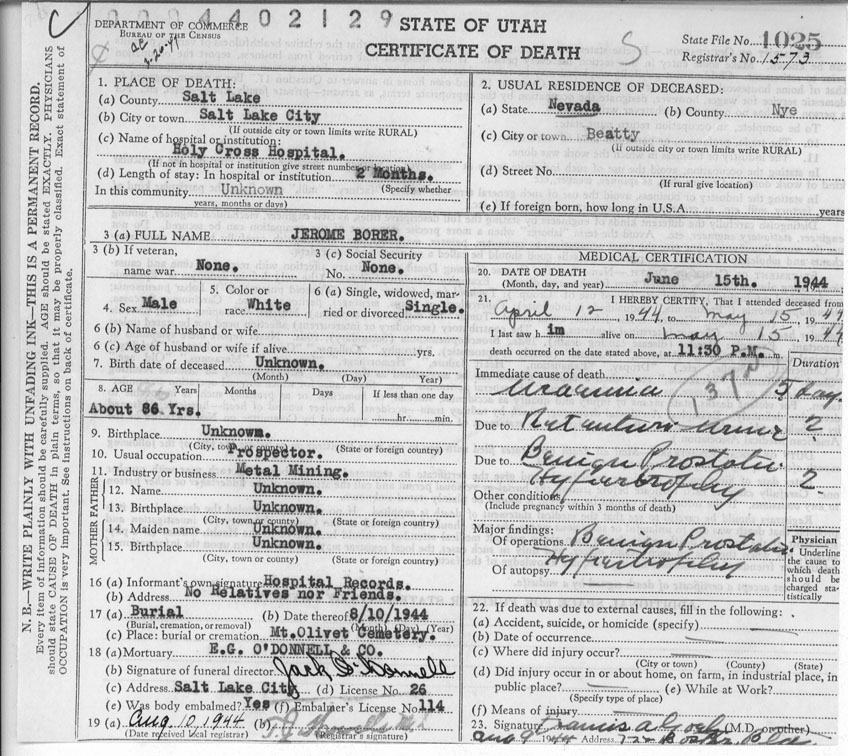 0004402129
DEPARTMENT OF COMMERCE
BUREAU OF THE CENSUS
STATE OF UTAH
CERTIFICATE OF DEATH
S
State File No. 1025
Registrar's No. 1573
N. B.—WRITE PLAINLY WITH UNFADING INK—THIS IS A PERMANENT RECORD.
Every item of information should be carefully supplied. AGE should be stated EXACTLY. PHYSICIANS
should state CAUSE OF DEATH in plain terms, so that it may be properly classified. Exact statement of
OCCUPATION is very important. See instructions on back of certificate.
1. PLACE OF DEATH:
(a) County Salt Lake
(b) City or town Salt Lake City
(If outside city or town limits write RURAL)
(c) Name of hospital or institution:
Holy Cross Hospital.
(If not in hospital or institution give street number or location)
(d) Length of stay: In hospital or institution 2 Months.
In this community Unknown (Specify whether
years, months or days)
2. USUAL RESIDENCE OF DECEASED:
(a) State Nevada (b) County Nye
(c) City or town Beatty
(If outside city or town limits write RURAL)
(d) Street No.
(If rural give location)
(e) If foreign born, how long in U.S.A. years
3 (a) FULL NAME JEROME BORER.
3 (b) If veteran, name war None.
3 (c) Social Security No. None.
4. Sex Male
5. Color or race White
6 (a) Single, widowed, married or divorced Single.
6 (b) Name of husband or wife
6 (c) Age of husband or wife if alive yrs.
7. Birth date of deceased Unknown.
(Month) (Day) Year)
8. AGE Years Months Days If less than one day
About 86 Yrs. hr. min.
9. Birthplace Unknown.
(City, town or county) (State or foreign country)
10. Usual occupation Prospector.
11. Industry or business Metal Mining.
FATHER
12. Name Unknown.
13. Birthplace Unknown.
(City, town or county) (State or foreign country)
MOTHER
14. Maiden name Unknown.
15. Birthplace Unknown.
(City, town or county) (State or foreign country)
16 (a) Informant's own signature Hospital Records.
(b) Address No Relatives nor Friends.
17 (a) Burial (b) Date thereof 8/10/1944
(Burial, cremation, or removal) (Month) (Day) (Year)
(c) Place: burial or cremation Mt.Olivet Cemetery.
18 (a) Mortuary E.G. O'DONNELL & CO.
(b) Signature of funeral director Jack O'Donnell
(c) Address Salt Lake City (d) License No. 26
(e) Was body embalmed? Yes (f) Embalmer's License No. 114
19 (a) Aug 10, 1944 (b)
(Date received local registrar) (Registrar's signature)
MEDICAL CERTIFICATION
20. DATE OF DEATH June 15th. 1944
(Month, day, and year)
21. I HEREBY CERTIFY, That I attended deceased from
April 12, 1944, to May 15, 1944
I last saw him alive on May 15, 1944
death occurred on the date stated above, at 11:30 P.M. m.
Duration
Immediate cause of death
Uraemia 5 day
Due to Retention urine ?
Due to Benign Prostatic
Hypertrophy ?
Other conditions
(Include pregnancy within 3 months of death)
Major findings:
Of operations Benign Prostatic
Hypertrophy
Of autopsy
Physician
Underline
the cause to
which death
should be
charged sta-
tistically
22. If death was due to external causes, fill in the following:
(a) Accident, suicide, or homicide (specify)
(b) Date of occurrence
(c) Where did injury occur?
(City or town) (County) (State)
(d) Did injury occur in or about home, on farm, in industrial place, in
public place? (e) While at Work?
(Specify type of place)
(f) Means of injury
23. Signature (M.D. or other)
Aug 9 1944 Address